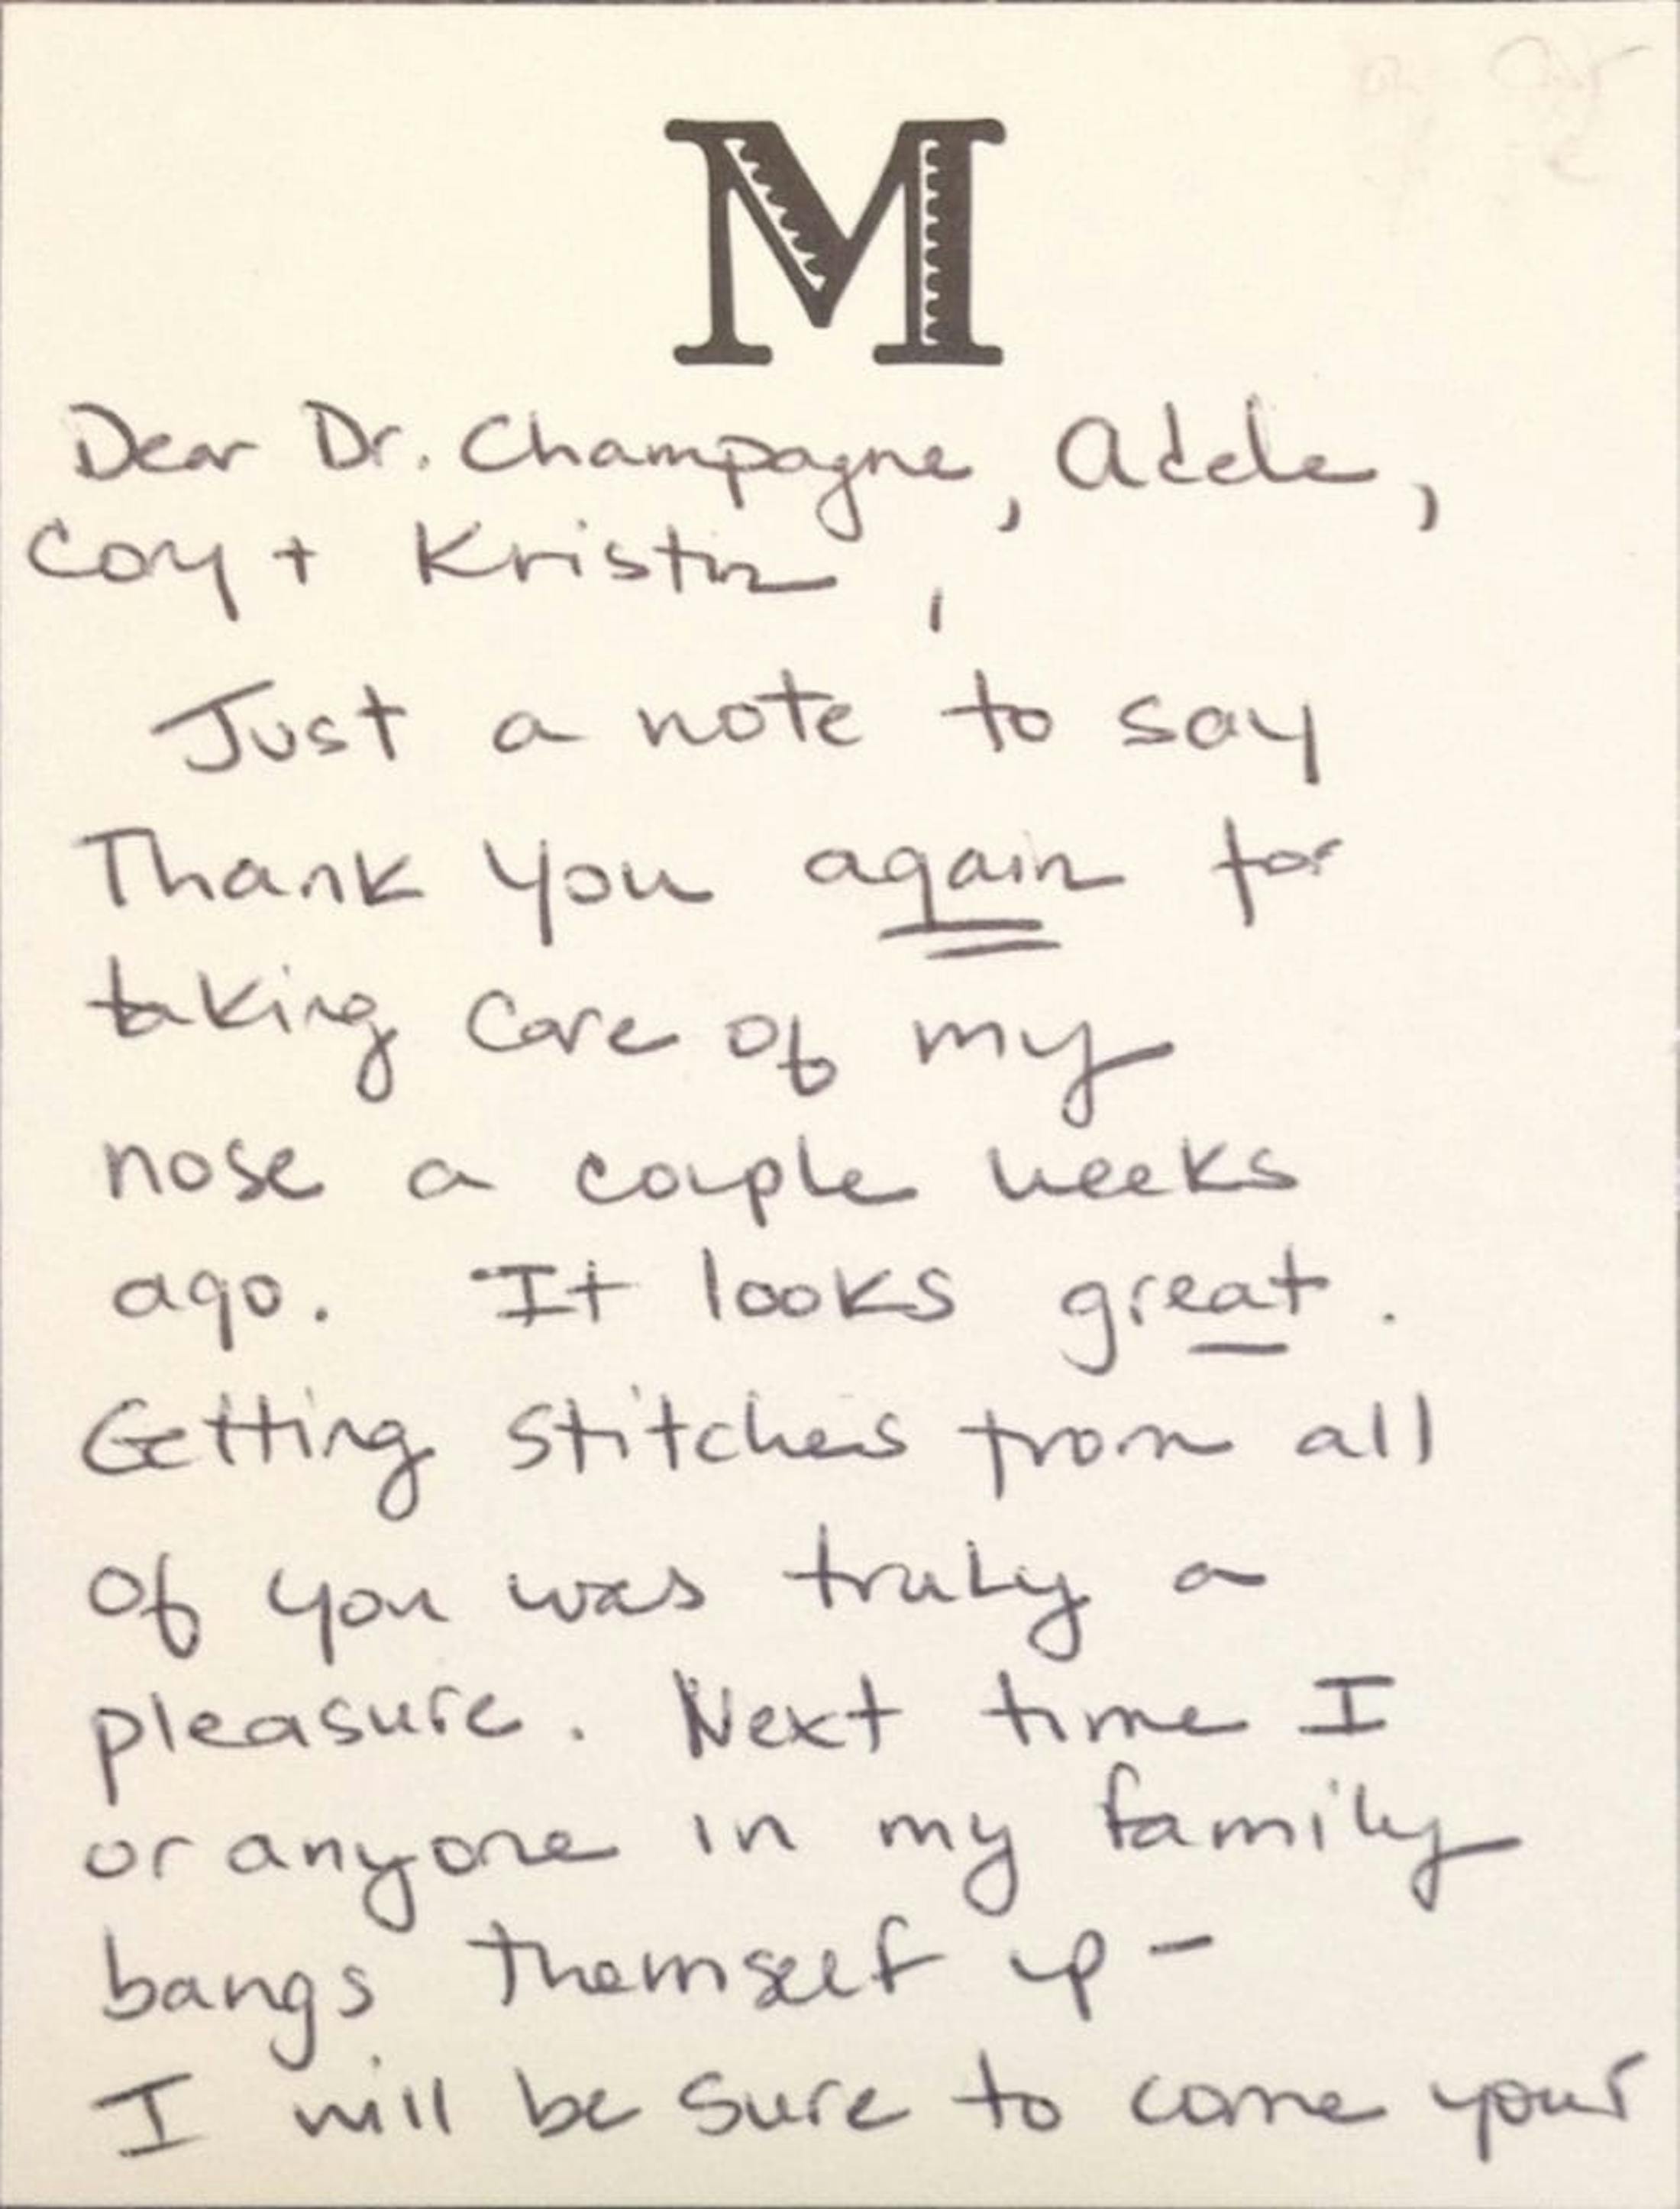 M
Dear Dr. Champagne, Adele,
Cory + Kristin,
Just a note to say
Thank you again for
taking care of my
nose a couple weeks
ago. It looks great.
Getting stitches from all
of you was truly a
pleasure. Next time I
or anyone in my family
bangs themself up -
I will be sure to come your